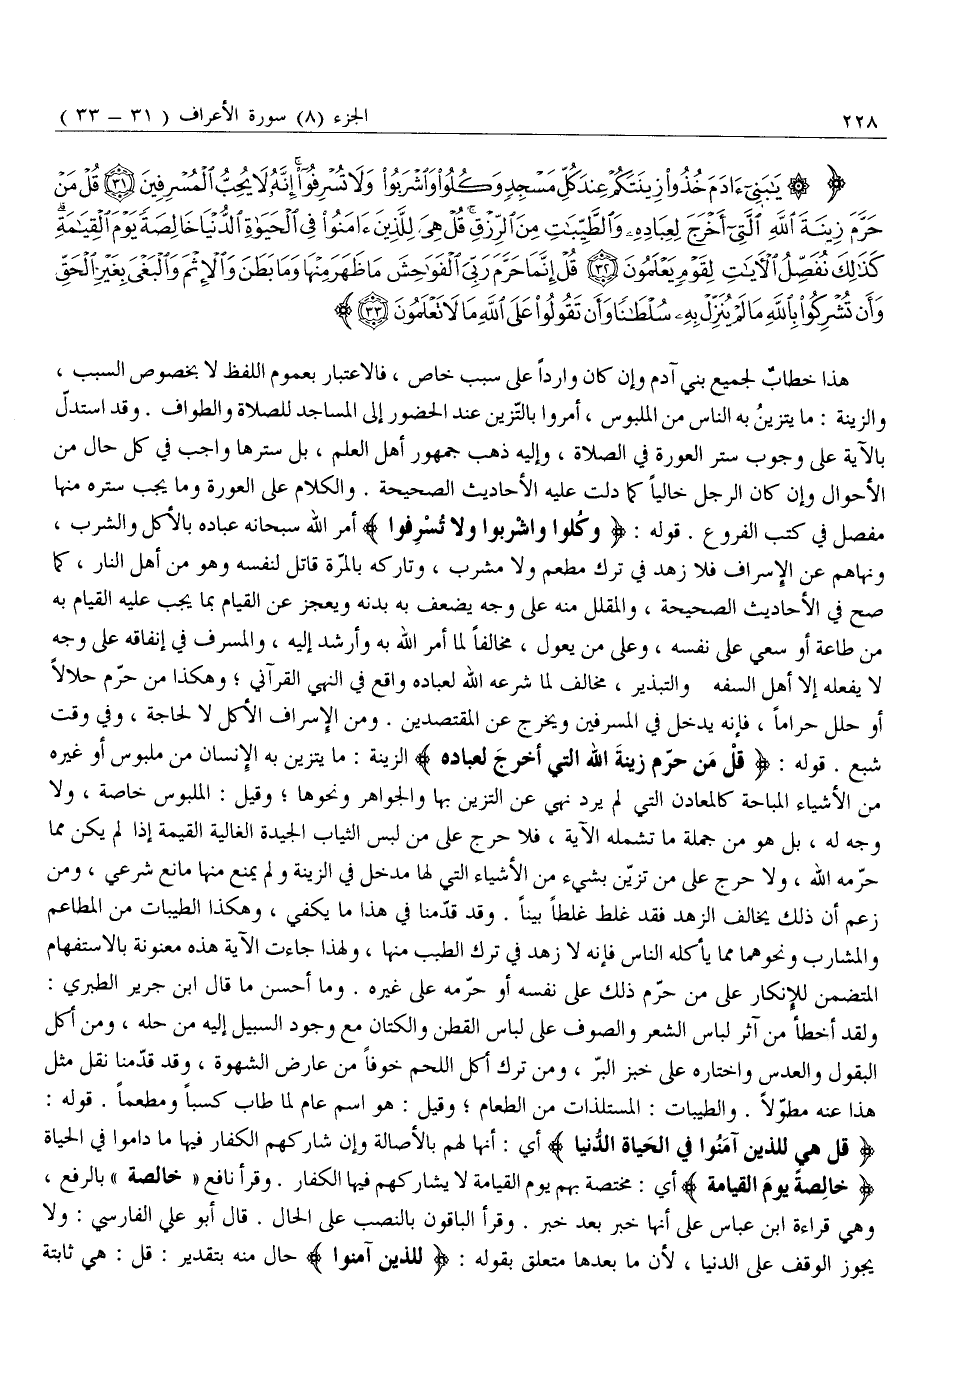 ٢٢٨ الجزء (٨) سورة الأعراف ( ٣١ – ٣٣ )
﴿ ۞ يَٰبَنِيٓ ءَادَمَ خُذُواْ زِينَتَكُمۡ عِندَ كُلِّ مَسۡجِدٖ وَكُلُواْ وَٱشۡرَبُواْ وَلَا تُسۡرِفُوٓاْۚ إِنَّهُۥ لَا يُحِبُّ ٱلۡمُسۡرِفِينَ ٣١ قُلۡ مَنۡ
حَرَّمَ زِينَةَ ٱللَّهِ ٱلَّتِيٓ أَخۡرَجَ لِعِبَادِهِۦ وَٱلطَّيِّبَٰتِ مِنَ ٱلرِّزۡقِۚ قُلۡ هِيَ لِلَّذِينَ ءَامَنُواْ فِي ٱلۡحَيَوٰةِ ٱلدُّنۡيَا خَالِصَةٗ يَوۡمَ ٱلۡقِيَٰمَةِۗ
كَذَٰلِكَ نُفَصِّلُ ٱلۡأٓيَٰتِ لِقَوۡمٖ يَعۡلَمُونَ ٣٢ قُلۡ إِنَّمَا حَرَّمَ رَبِّيَ ٱلۡفَوَٰحِشَ مَا ظَهَرَ مِنۡهَا وَمَا بَطَنَ وَٱلۡإِثۡمَ وَٱلۡبَغۡيَ بِغَيۡرِ ٱلۡحَقِّ
وَأَن تُشۡرِكُواْ بِٱللَّهِ مَا لَمۡ يُنَزِّلۡ بِهِۦ سُلۡطَٰنٗا وَأَن تَقُولُواْ عَلَى ٱللَّهِ مَا لَا تَعۡلَمُونَ ٣٣ ﴾
هذا خطابٌ لجميع بني آدم وإن كان وارداً على سبب خاص ، فالاعتبار بعموم اللفظ لا بخصوص السبب ،
والزينة : ما يتزينُ به الناس من الملبوس ، أمروا بالتّزين عند الحضور إلى المساجد للصلاة والطواف . وقد استدلّ
بالآية على وجوب ستر العورة في الصلاة ، وإليه ذهب جمهور أهل العلم ، بل سترها واجب في كل حال من
الأحوال وإن كان الرجل خالياً كما دلت عليه الأحاديث الصحيحة . والكلام على العورة وما يجب ستره منها
مفصل في كتب الفروع . قوله : ﴿ وكُلوا واشْربوا ولا تُسْرِفوا ﴾ أمر الله سبحانه عباده بالأكل والشرب ،
ونهاهم عن الإسراف فلا زهد في ترك مطعم ولا مشرب ، وتاركه بالمرّة قاتل لنفسه وهو من أهل النار ، كما
صح في الأحاديث الصحيحة ، والمقلل منه على وجه يضعف به بدنه ويعجز عن القيام بما يجب عليه القيام به
من طاعة أو سعي على نفسه ، وعلى من يعول ، مخالفاً لما أمر الله به وأرشد إليه ، والمسرف في إنفاقه على وجه
لا يفعله إلا أهل السفه والتبذير ، مخالف لما شرعه الله لعباده واقع في النهي القرآني ؛ وهكذا من حرّم حلالاً
أو حلل حراماً ، فإنه يدخل في المسرفين ويخرج عن المقتصدين . ومن الإسراف الأكل لا لحاجة ، وفي وقت
شبع . قوله : ﴿ قلْ مَن حرّم زينةَ الله التي أخرجَ لعباده ﴾ الزينة : ما يتزين به الإنسان من ملبوس أو غيره
من الأشياء المباحة كالمعادن التي لم يرد نهي عن التزين بها والجواهر ونحوها ؛ وقيل : الملبوس خاصة ، ولا
وجه له ، بل هو من جملة ما تشمله الآية ، فلا حرج على من لبس الثياب الجيدة الغالية القيمة إذا لم يكن مما
حرّمه الله ، ولا حرج على من تزيّن بشيء من الأشياء التي لها مدخل في الزينة ولم يمنع منها مانع شرعي ، ومن
زعم أن ذلك يخالف الزهد فقد غلط غلطاً بيناً . وقد قدّمنا في هذا ما يكفي ، وهكذا الطيبات من المطاعم
والمشارب ونحوهما مما يأكله الناس فإنه لا زهد في ترك الطيب منها ، ولهذا جاءت الآية هذه معنونة بالاستفهام
المتضمن للإنكار على من حرّم ذلك على نفسه أو حرّمه على غيره . وما أحسن ما قال ابن جرير الطبري :
ولقد أخطأ من آثر لباس الشعر والصوف على لباس القطن والكتان مع وجود السبيل إليه من حله ، ومن أكل
البقول والعدس واختاره على خبز البرّ ، ومن ترك أكل اللحم خوفاً من عارض الشهوة ، وقد قدّمنا نقل مثل
هذا عنه مطوّلاً . والطيبات : المستلذات من الطعام ؛ وقيل : هو اسم عام لما طاب كسباً ومطعماً . قوله :
﴿ قل هي للذين آمَنُوا في الحَياة الدُّنيا ﴾ أي : أنها لهم بالأصالة وإن شاركهم الكفار فيها ما داموا في الحياة
﴿ خالِصةً يومَ القيامة ﴾ أي : مختصة بهم يوم القيامة لا يشاركهم فيها الكفار . وقرأ نافع « خالصة » بالرفع ،
وهي قراءة ابن عباس على أنها خبر بعد خبر . وقرأ الباقون بالنصب على الحال . قال أبو علي الفارسي : ولا
يجوز الوقف على الدنيا ، لأن ما بعدها متعلق بقوله : ﴿ للذين آمنوا ﴾ حال منه بتقدير : قل : هي ثابتة